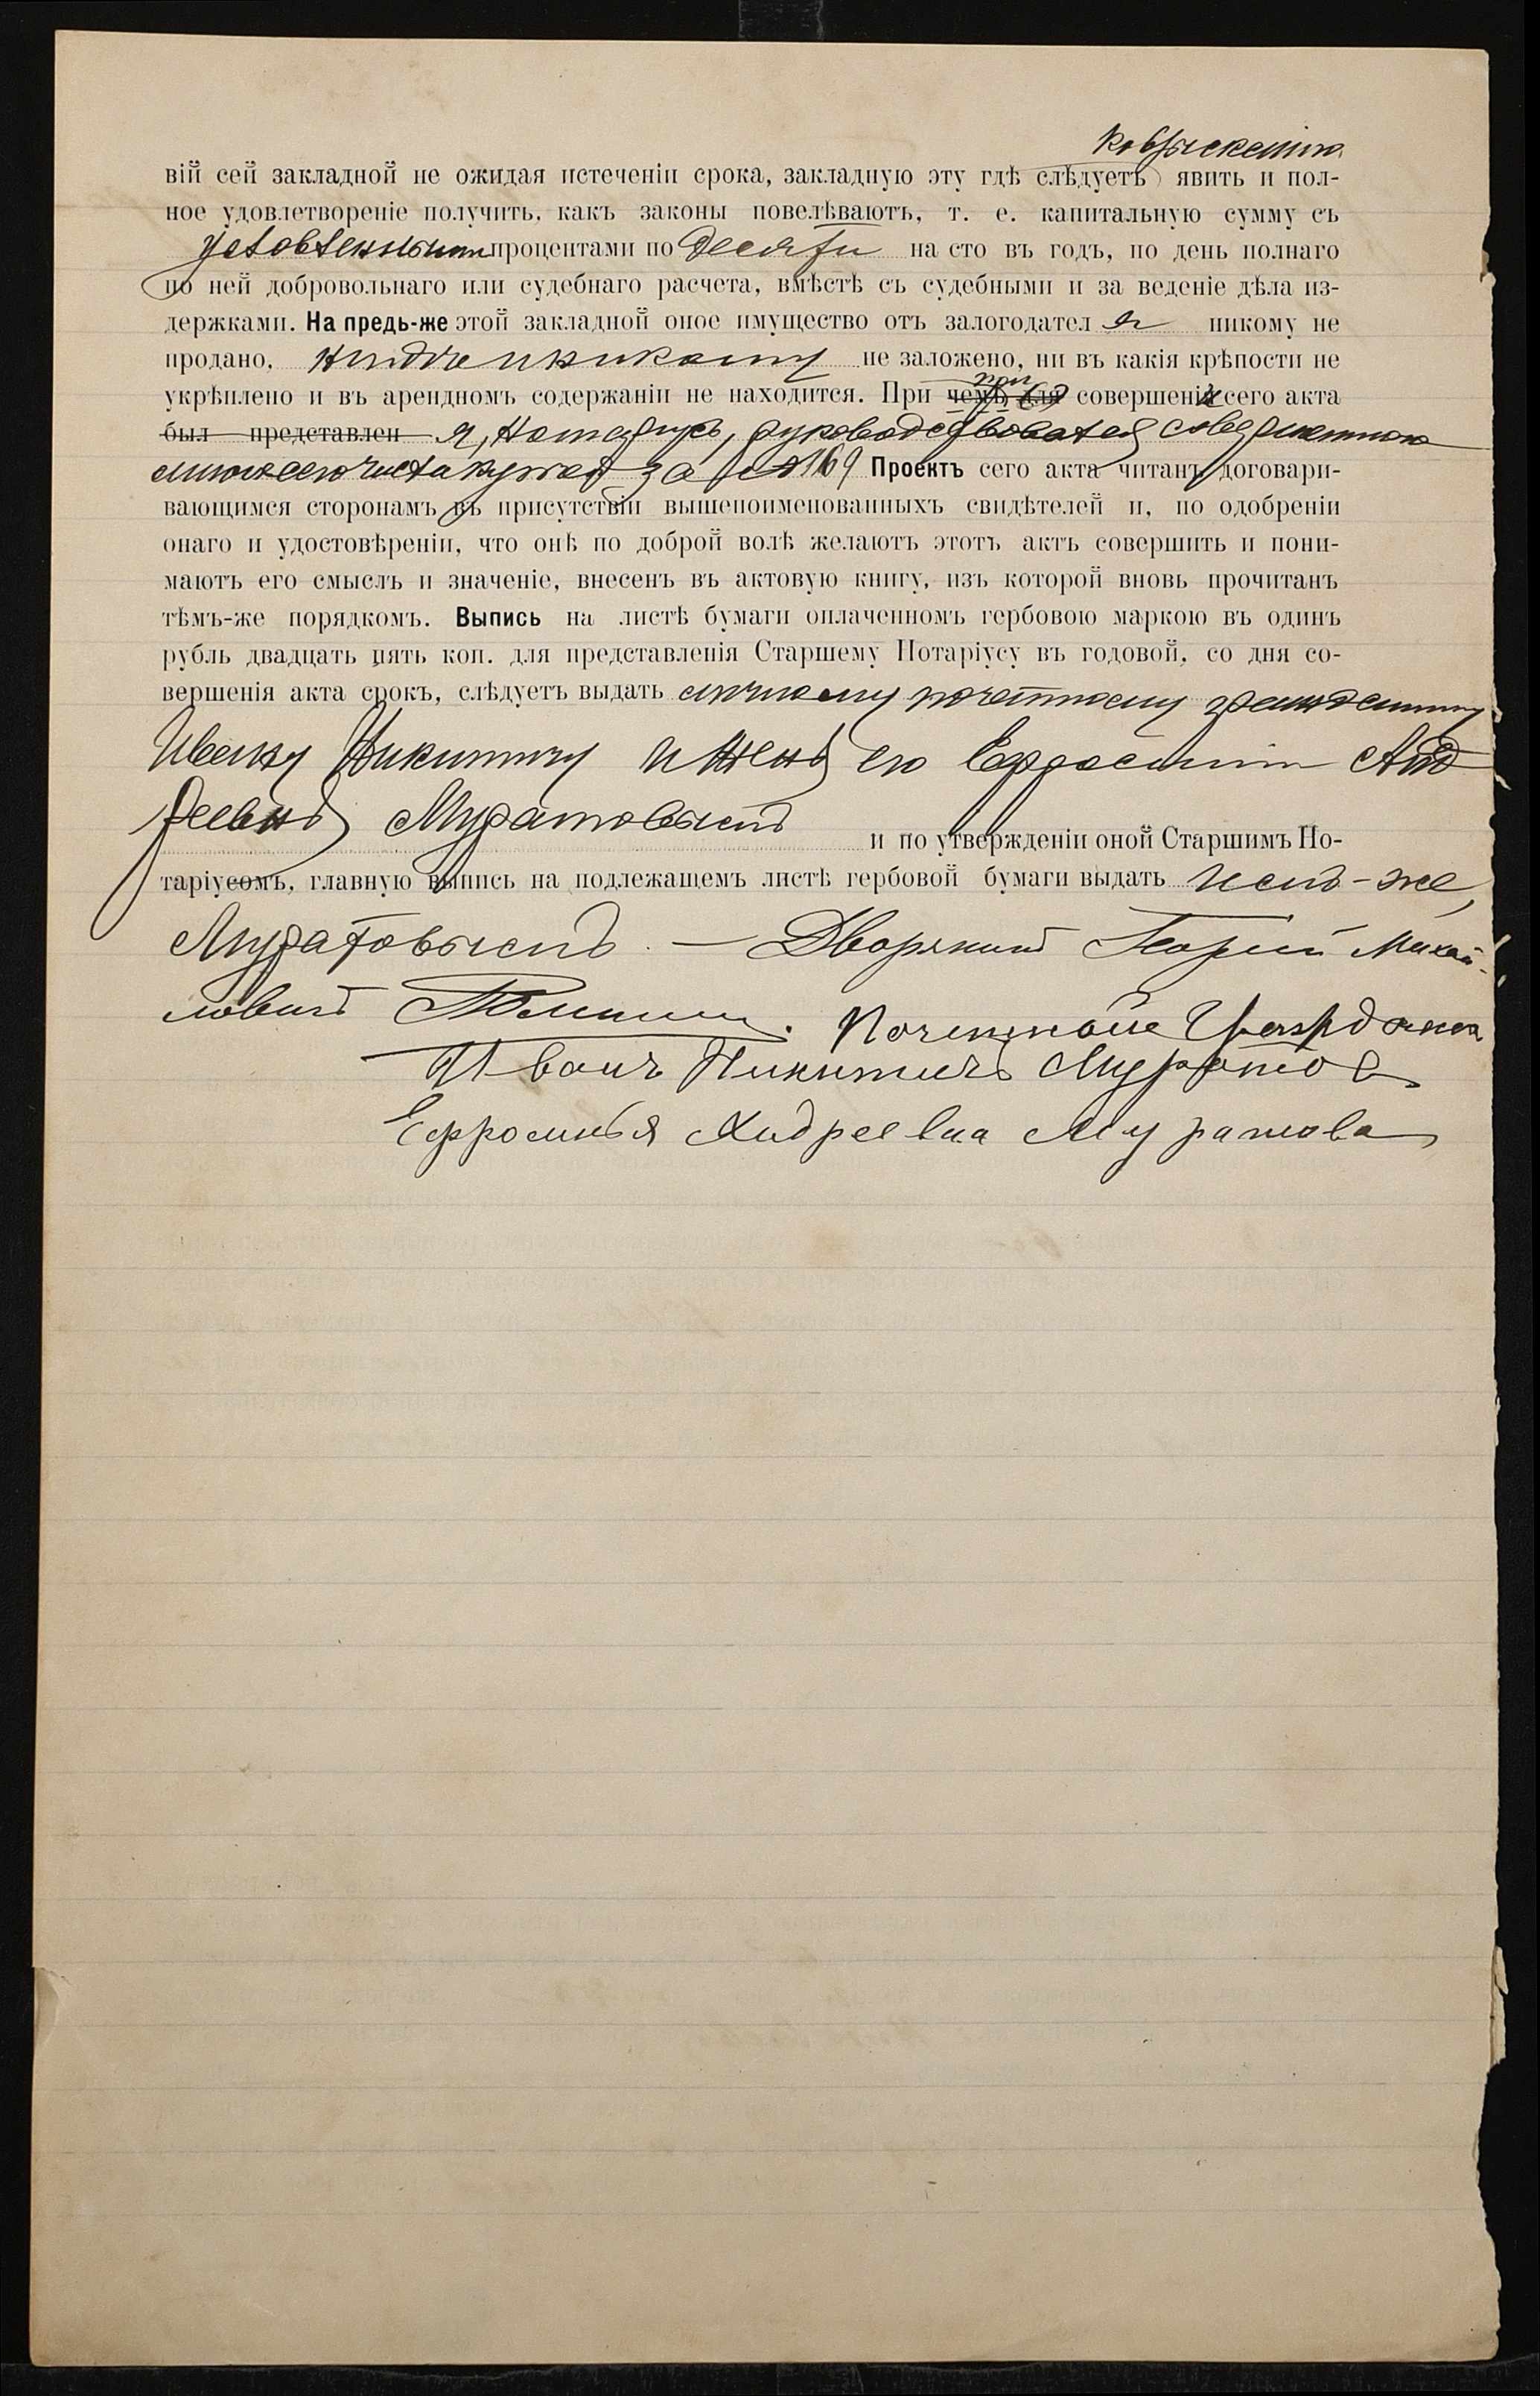 ко взысканію
вій сей закладной не ожидая истеченіи срока, закладную эту гдѣ слѣдуетъ явить и пол-
ное удовлетвореніе получить, какъ законы повелѣваютъ, т. е. капитальную сумму съ
процентами по десяти на сто въ годъ, по день полнаго
по ней добровольнаго или судебнаго расчета, вмѣстѣ съ судебными и за веденіе дѣла из-
держками. На предь-же этой закладной оное имущество отъ залогодател я никому не
продано, не заложено, ни въ какія крѣпости не
укрѣплено и въ арендномъ содержаніи не находится. При чемъ для при совершеніи сего акта
был представлен я, Нотаріусъ, руководствовался совершенною
169 Проектъ сего акта читанъ договари-
вающимся сторонамъ въ присутствіи вышепоименованныхъ свидѣтелей и, по одобреніи
онаго и удостовѣреніи, что онѣ по доброй волѣ желаютъ этотъ актъ совершить и пони-
маютъ его смыслъ и значеніе, внесенъ въ актовую книгу, изъ которой вновь прочитанъ
тѣмъ-же порядкомъ. Выпись на листѣ бумаги оплаченномъ гербовою маркою въ одинъ
рубль двадцать пять коп. для представленія Старшему Нотаріусу въ годовой, со дня со-
вершенія акта срокъ, слѣдуетъ выдать личному почетному гражданину
Ивану Никитичу и женѣ его Ефросиніи Анд
реевнѣ Муратовымъ и по утвержденіи оной Старшимъ Но-
таріусомъ, главную выпись на подлежащемъ листѣ гербовой бумаги выдать имъ-же,
Муратовымъ. — Дворянинъ Георгій Михай-
ловичъ
Иванъ Никитичъ Муратов
Ефросинья Андреевна Муратова